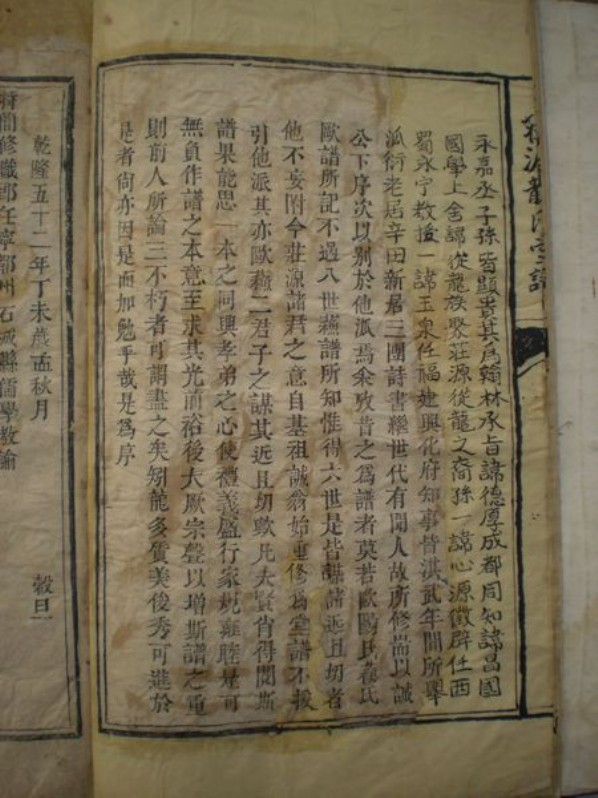 永嘉丞子孫皆顯貴其為翰林承旨諱德厚成都同知諱昌國
國學上舍諱從龍族聚莊源從龍之裔孫一諱心源徵辟任西
蜀永宁教授一諱玉泉任福建興化府知事皆洪武年間所舉
派衍老居辛田新居三團詩書繼世代有聞人故所修耑以誠
公下序次以別於他派焉余攷昔之為譜者莫若歐陽氏蘓氏
歐譜所記不過八世蘓譜所知惟得六世是皆謀諸近且切者
他不妄附今莊源諸君之意自基祖誠翁始重修為堂譜不援
引他派其亦歐蘓二君子之謀其近且切歟凡夫賢肖得閱斯
譜果能思一本之同興孝弟之心使禮義盛行家規雍睦是可
無負作譜之本意至求其光前裕後大厥宗聲以增斯譜之重
則前人所論三不朽者可謂盡之矣矧能多質美後秀可進於
是者尚亦因是而加勉乎哉是為序
乾隆五十二年丁未歲孟秋月 穀旦
修職郎任寧都州石城縣儒學教諭